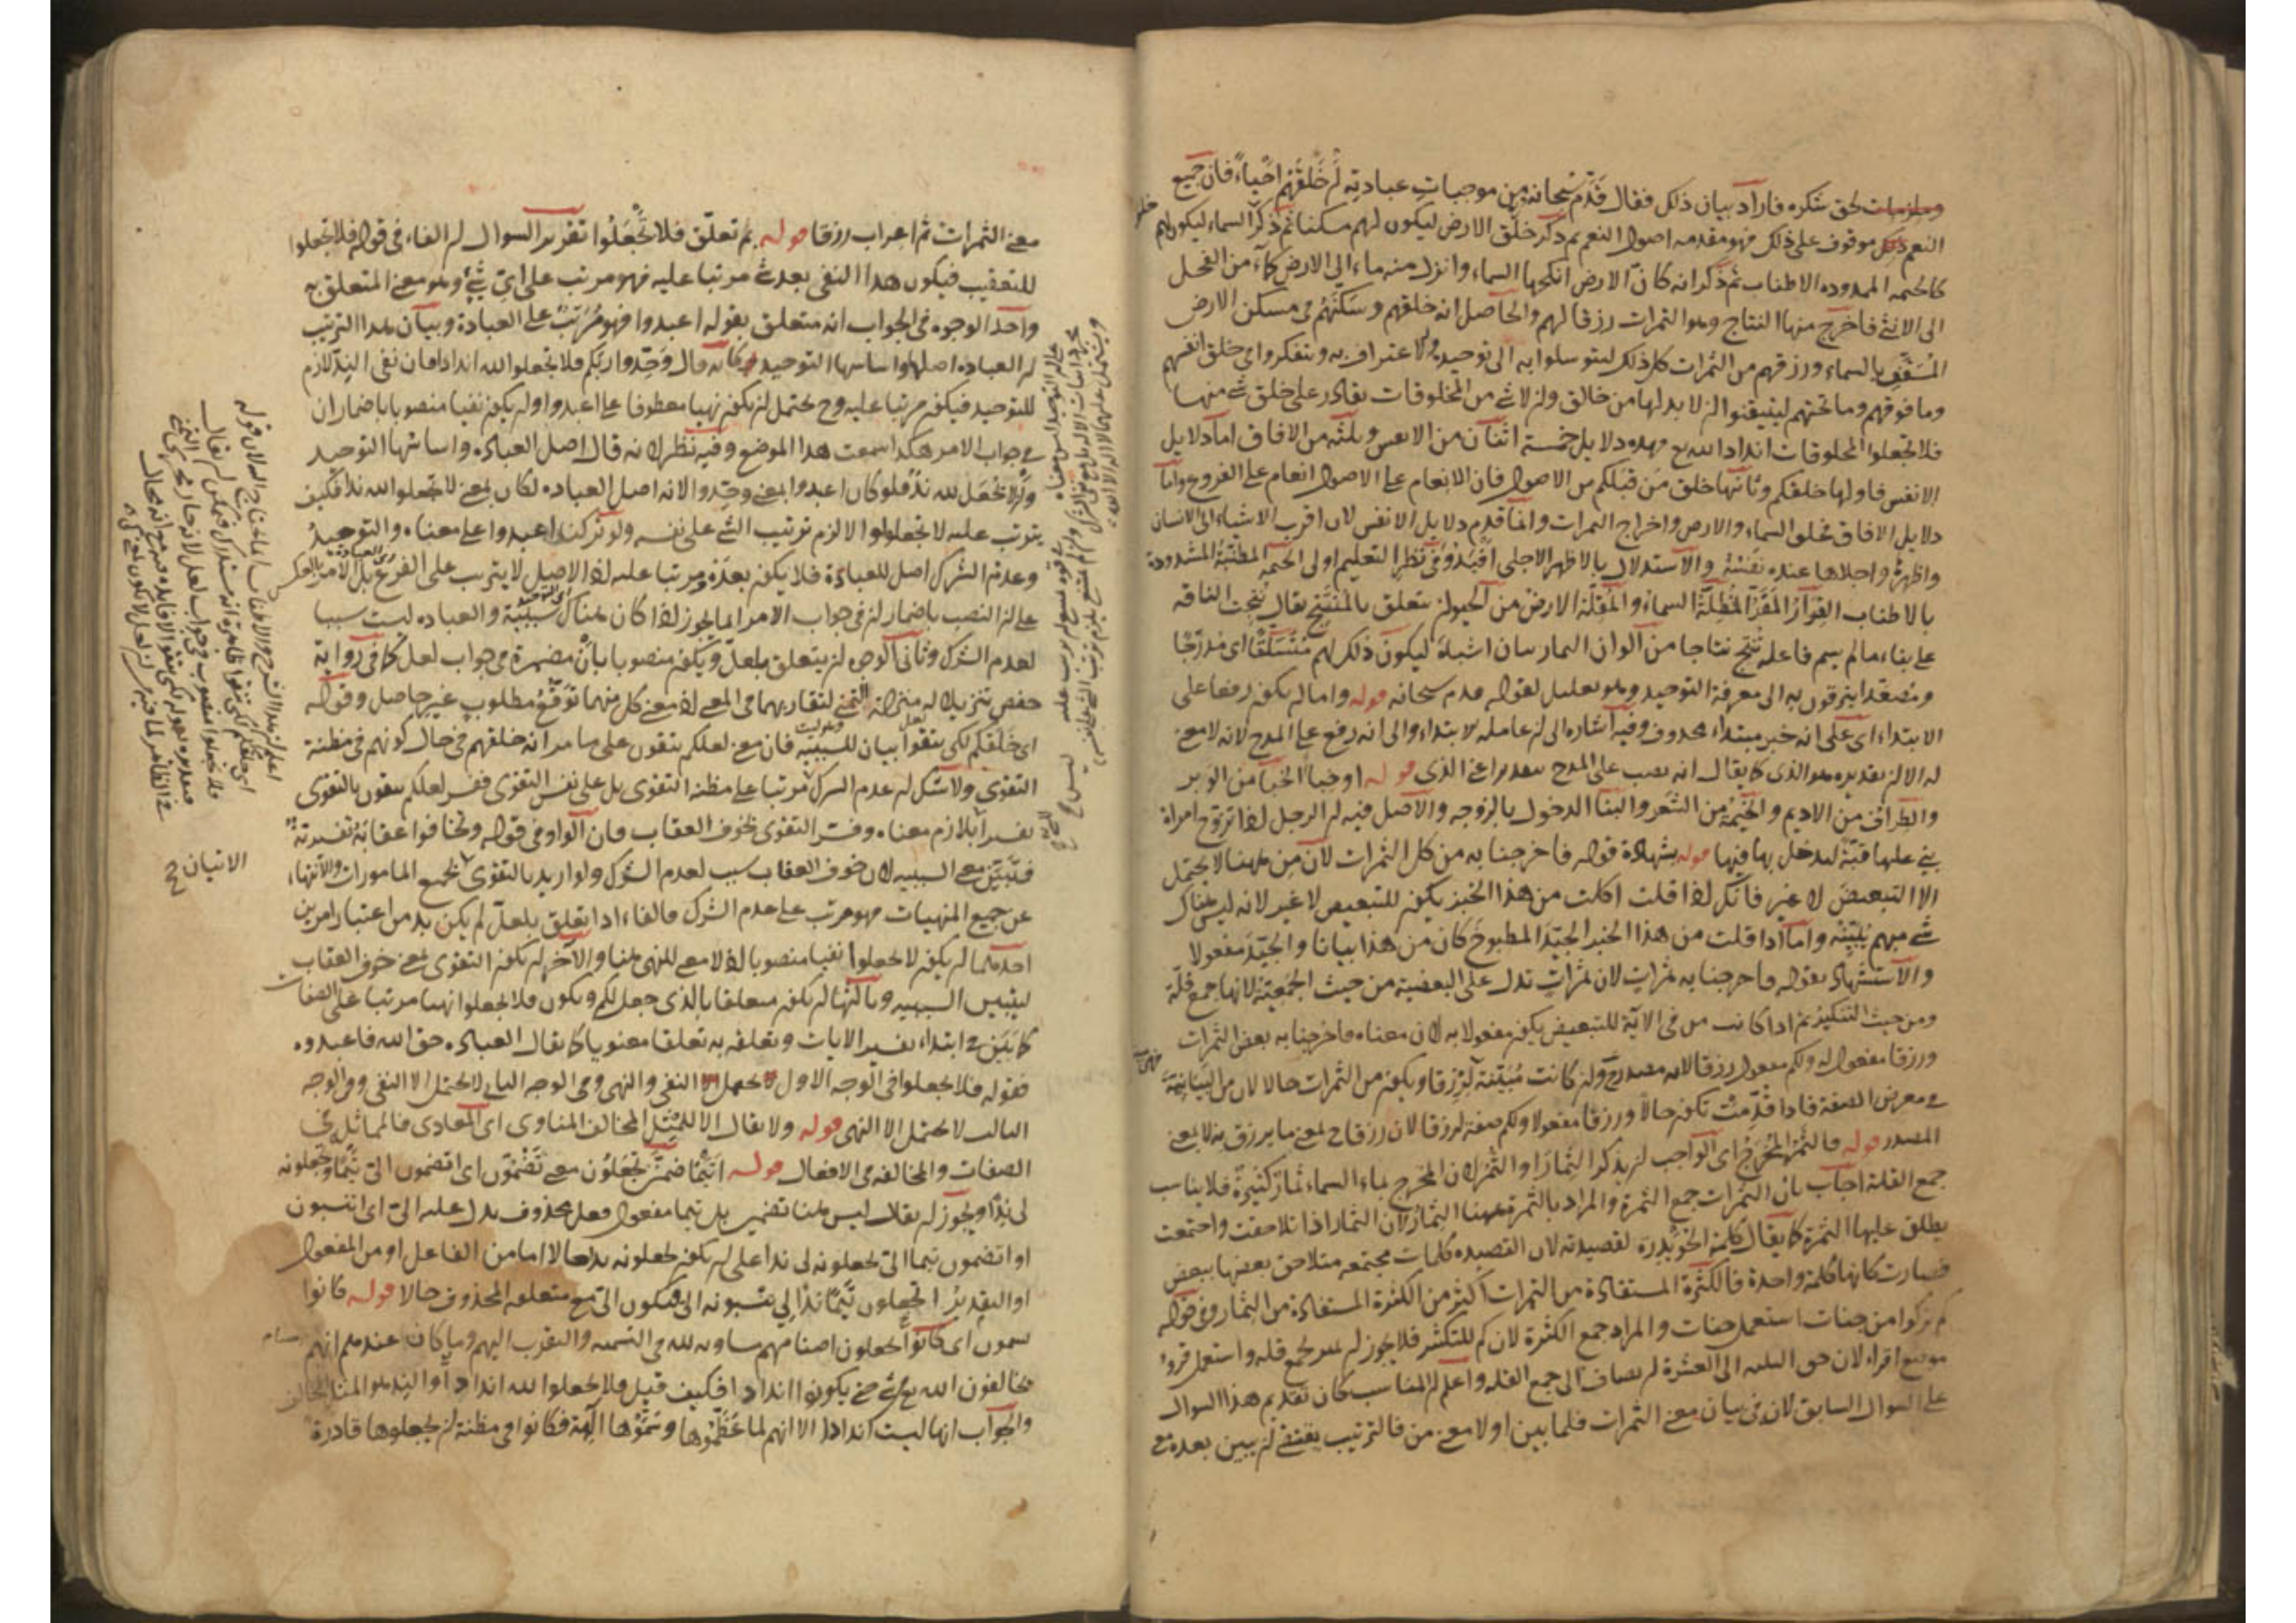 وملزمات لحق شكره فاراد بيان ذلك فقال قدم سبحانه من موجبات عبادته لم خلقهم احياء فان جميع
النعم موقوف على ذلك فهو مقدمه اصول النعم ثم ذكر خلق الارض ليكون لهم مسكنا ثم ذكر السماء ليكون لهم
كالخيمه الممدوده الاطناب ثم ذكر انه كان الارض انكحها السماء وانزل منه ماء الى الارض كماء من الفحل
الى الانثى فاخرج منها النتاج وهو الثمرات رزقا لهم والحاصل انه خلقهم وسكنهم في مسكن الارض
المسقف بالسماء ورزقهم من الثمرات كل ذلك ليتوسلوا به الى توحيده والاعتراف به ويتفكروا في خلق انفسهم
وما فوقهم وما تحتهم ليتيقنوا ان لا بد لها من خالق وان لا شئ من المخلوقات بقادر على خلق شئ منها
فلا تجعلوا المخلوقات اندادا لله تع فهذه دلايل خمسة اثنان من الانفس وثلثه من الافاق اما دلايل
الانفس فاولها خلقكم وثانيها خلق من قبلكم من الاصول فان الانعام على الاصول انعام على الفروع واما
دلايل الافاق فخلق السماء والارض واخراج الثمرات وانما قدم دلايل الانفس لان اقرب الاشياء الى الانسان
واظهرها واجلاها عنده نفسه والاستدلال بالاظهر الاجلى افيد وفي نظر التعليم اولى الخيمه المطنبة المشدودة
بالاطناب القرار المقر المظلة السماء والمقلة الارض من الحيوان يتعلق بالمنتج يقال نتجت الناقه
على بناء ما لم يسم فاعله تنتج نتاجا من الوان الثمار بيان اشباه ليكون ذلك لهم متسلقا اى مدرجا
ومصعدا يترقون به الى معرفة التوحيد وهو تعليل لقوله قدم سبحانه قوله واما ان يكون رفعا على
الابتداء اى على انه خبر مبتداء محذوف وفيه اشاره الى ان عامله الابتداء والى انه رفع على المدح لانه لا معنى
له الا ان تقديره هو الذى كما يقال انه نصب على المدح بتقدير اعني الذى قوله او خباء الخباء من الوبر
والطراف من الاديم والخيمة من الشعر والبناء الدخول بالزوجه والاصل فيه ان الرجل اذا تزوج امراة
بنى عليها قبة ليدخل بها فيها قوله بشهادة قوله فاخرجنا به من كل الثمرات لان من ههنا لا يحتمل
الا التبعيض لا غير فانك اذا قلت اكلت من هذا الخبز يكون للتبعيض لا غير لانه ليس هناك
شئ مبهم تبينه واما اذا قلت من هذا الخبز الجيد المطبوخ كان من هذا بيانا والجيد مفعولا
والاستشهاد بقوله فاخرجنا به ثمرات لان ثمرات تدل على البعضية من حيث الجمعية لانها جمع قلة
ومن حيث التنكير ثم اذا كانت من في الاية للتبعيض يكون مفعولا به لان معناه فاخرجنا به بعض الثمرات
ورزقا مفعول له ولكم مفعول رزقا لانه مصدر وان كانت مبينة لرزقا ويكون من الثمرات حالا لان من البيانية
في معرض الصفة فاذا قدمت تكون حالا ورزقا مفعولا ولكم صفة لرزقا لان رزقا ح بمعنى ما يرزق به لا بمعنى
المصدر قوله فالثمر المخرج اى الواجب ان يذكر الثمار او الثمر لان المخرج بماء السماء ثمار كثيرة فلا يناسب
جمع القلة اجاب بان الثمرات جمع الثمرة والمراد بالثمرة ههنا الثمار لان الثمار اذا تلاحقت واجتمعت
يطلق عليها الثمرة كما يقال كلمة الحويدرة لقصيدته لان القصيده كلمات مجتمعه متلاحق بعضها ببعض
فصارت كانها كلمة واحدة فالكثرة المستفادة من الثمرات اكثر من الكثرة المستفادة من الثمار وفي قوله
كم تركوا من جنات استعمل جنات والمراد جمع الكثرة لان كم للتكثير فلا يجوز ان يميز بجمع قله واستعمل قروء
موضع اقراء لان حق الثلثه الى العشرة ان يضاف الى جمع القله واعلم ان المناسب كان تقديم هذا السوال
على السوال السابق لان في بيان معنى الثمرات فلما بين اولا معنى من فالترتيب يقتضى ان يبين بعده
معنى الثمرات ثم اعراب رزقا قوله بم تعلق فلا تجعلوا تقرير السوال ان الفاء في قوله فلا تجعلوا
للتعقيب فيكون هذا النفي بعد شئ مرتبا عليه فهو مرتب على اي شئ وهو معنى المتعلق به
واحد الوجوه في الجواب انه متعلق بقوله اعبدوا فهو مرتب على العبادة وبيان هذا الترتيب
ان العباده اصلها واساسها التوحيد وكانه قال وحدوا ربكم فلا تجعلوا لله اندادا فان نفى الند لازم
للتوحيد فيكون مرتبا عليه وح يحتمل ان يكون نهيا معطوفا على اعبدوا وان يكون نفيا منصوبا باضمار ان
في جواب الامر هكذا سمعت هذا الموضع وفيه نظر لانه قال اصل العباده واساسها التوحيد
وان لا تجعل لله ند فلو كان اعبدوا بمعنى وحدوا لانه اصل العباده لكان بمعنى لا تجعلوا لله ندا فكيف
يترتب عليه لا تجعلوا والا لزم ترتيب الشئ على نفسه ولو تركنا اعبدوا على معناه والتوحيد
وعدم الشرك اصل للعبادة فلا يكون بعده ومرتبا عليه اذ الاصل لا يترتب على الفرع بل الامر بالعكس
على ان النصب باضمار ان في جواب الامر انما يجوز اذا كان هناك سببية والعباده ليست سببا
لعدم الشرك وثاني الوجوه ان يتعلق بلعل ويكون منصوبا بان مضمرة في جواب لعل كما في رواية
حفص تنزيلا له منزلة التمني لتقاربهما في المعنى اذ معنى كل منهما توقع مطلوب غير حاصل وقوله
اى خلقكم لكي يتقوا بيان للسببيه فان معنى لعلكم تتقون على ما مر انه خلقهم في حال كونهم في مظنة
التقوى ولا شك ان عدم الشرك مرتبا على مظنة التقوى بل على نفس التقوى ففسر لعلكم تتقون بالتقوى
تفسيرا بلازم معناه وفسر التقوى بخوف العقاب فان الواو في قوله وتخافوا عقابه تفسيرية
فتبين معنى السببيه لان خوف العقاب سبب لعدم الشرك ولو اريد بالتقوى جميع المامورات والانتهاء
عن جميع المنهيات فهو مرتب على عدم الشرك فالفاء اذا تعلق بلعل لم يكن بد من اعتبار امرين
احدهما ان يكون لا تجعلوا نفيا منصوبا اذ لا معنى للنهي هنا والاخر ان يكون التقوى بمعنى خوف العقاب
ليتبين السببيه وثالثها ان يكون متعلقا بالذى جعل لكم ويكون فلا تجعلوا نهيا مرتبا على الصفات
كما بين في ابتداء تفسير الايات وتعلقه به تعلقا معنويا كما يقال العباده حق الله فاعبدوه
فقوله فلا تجعلوا في الوجه الاول يحتمل النفي والنهي وفي الوجه الثاني لا يحتمل الا النفي وفي الوجه
الثالث لا يحتمل الا النهي قوله ولا يقال الا للمثل المخالف المناوى اى المعادى فالمماثل في
الصفات والمخالفه في الافعال قوله اتيما ضمن تجعلون معنى تضمون اى اتضمون الى تيما وتجعلونه
لى ندا ويجوز ان يقال ليس هنا تضمين بل تيما مفعول فعل محذوف يدل عليه الى اى اتنسبون
او اتضمون تيما الى تجعلونه لى ندا على ان يكون تجعلونه ندا حالا اما من الفاعل او من المفعول
او التقدير اتجعلون تيما ندا لى تنسبونه الى فيكون الى مع متعلقه المحذوف حالا قوله كانوا
يسمون اى كانوا يجعلون اصنامهم مساويه لله في التسميه والتقرب اليهم وما كان عندهم انهم
مخالفون الله تع في شئ حتى يكونوا اندادا فكيف قيل فلا تجعلوا لله اندادا والند هو المثل المخالف
والجواب انها ليست اندادا الا انهم لما عظموها وسموها الهة فكانوا في مظنة ان يجعلوها قادرة
الاتيان